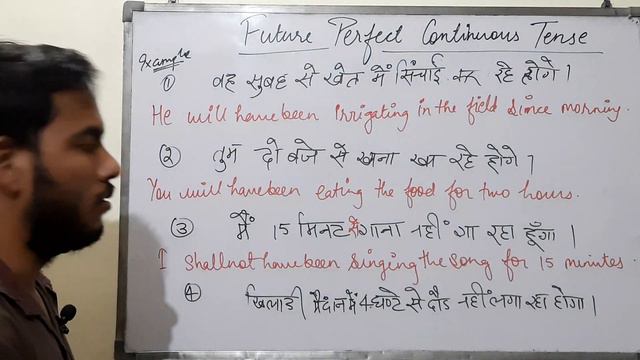 Future Perfect Continuous Tense
Example
① वह सुबह से खेत में सिंचाई कर रहे होंगे।
He will have been irrigating in the field since morning.
② तुम दो बजे से खाना खा रहे होंगे।
You will have been eating the food for two hours.
③ मैं 15 मिनट से गाना नहीं गा रहा हूँगा।
I shall not have been singing the song for 15 minutes.
④ खिलाडी मैदान में 4 घण्टे से दौड नहीं लगा रहा होगा।